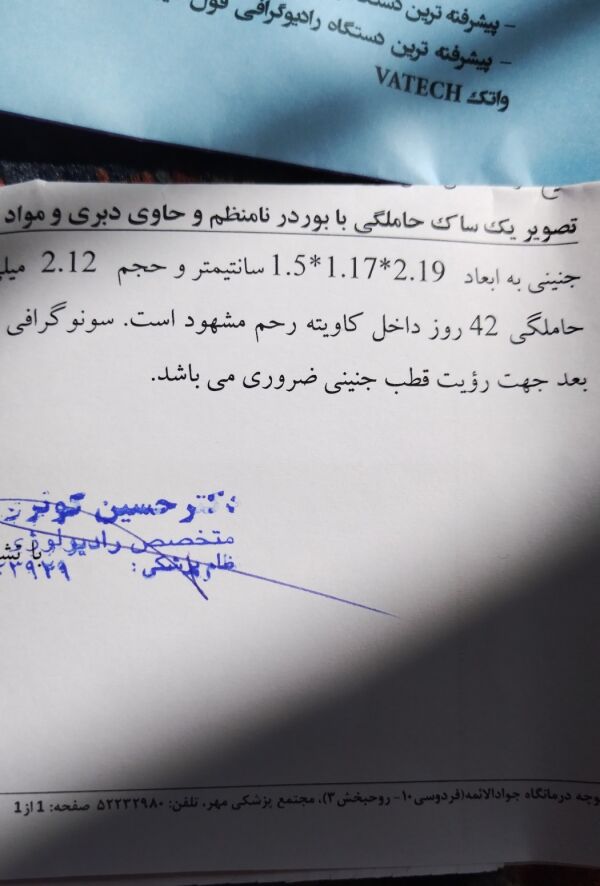 - پیشرفته ترین
- پیشرفته ترین دستگاه رادیوگرافی فول
واتک VATECH
تصویر یک ساک حاملگی با بوردر نامنظم و حاوی دبری و مواد
جنینی به ابعاد 2.19*1.17*1.5 سانتیمتر و حجم 2.12
حاملگی 42 روز داخل کاویته رحم مشهود است. سونوگرافی
بعد جهت رؤیت قطب جنینی ضروری می باشد.
دکتر حسین
متخصص رادیولوژی
نظام پزشکی:
درمانگاه جوادالائمه(فردوسی۱۰- روحبخش۳)، مجتمع پزشکی مهر، تلفن: ۵۲۲۳۲۹۸۰ صفحه: 1 از 1